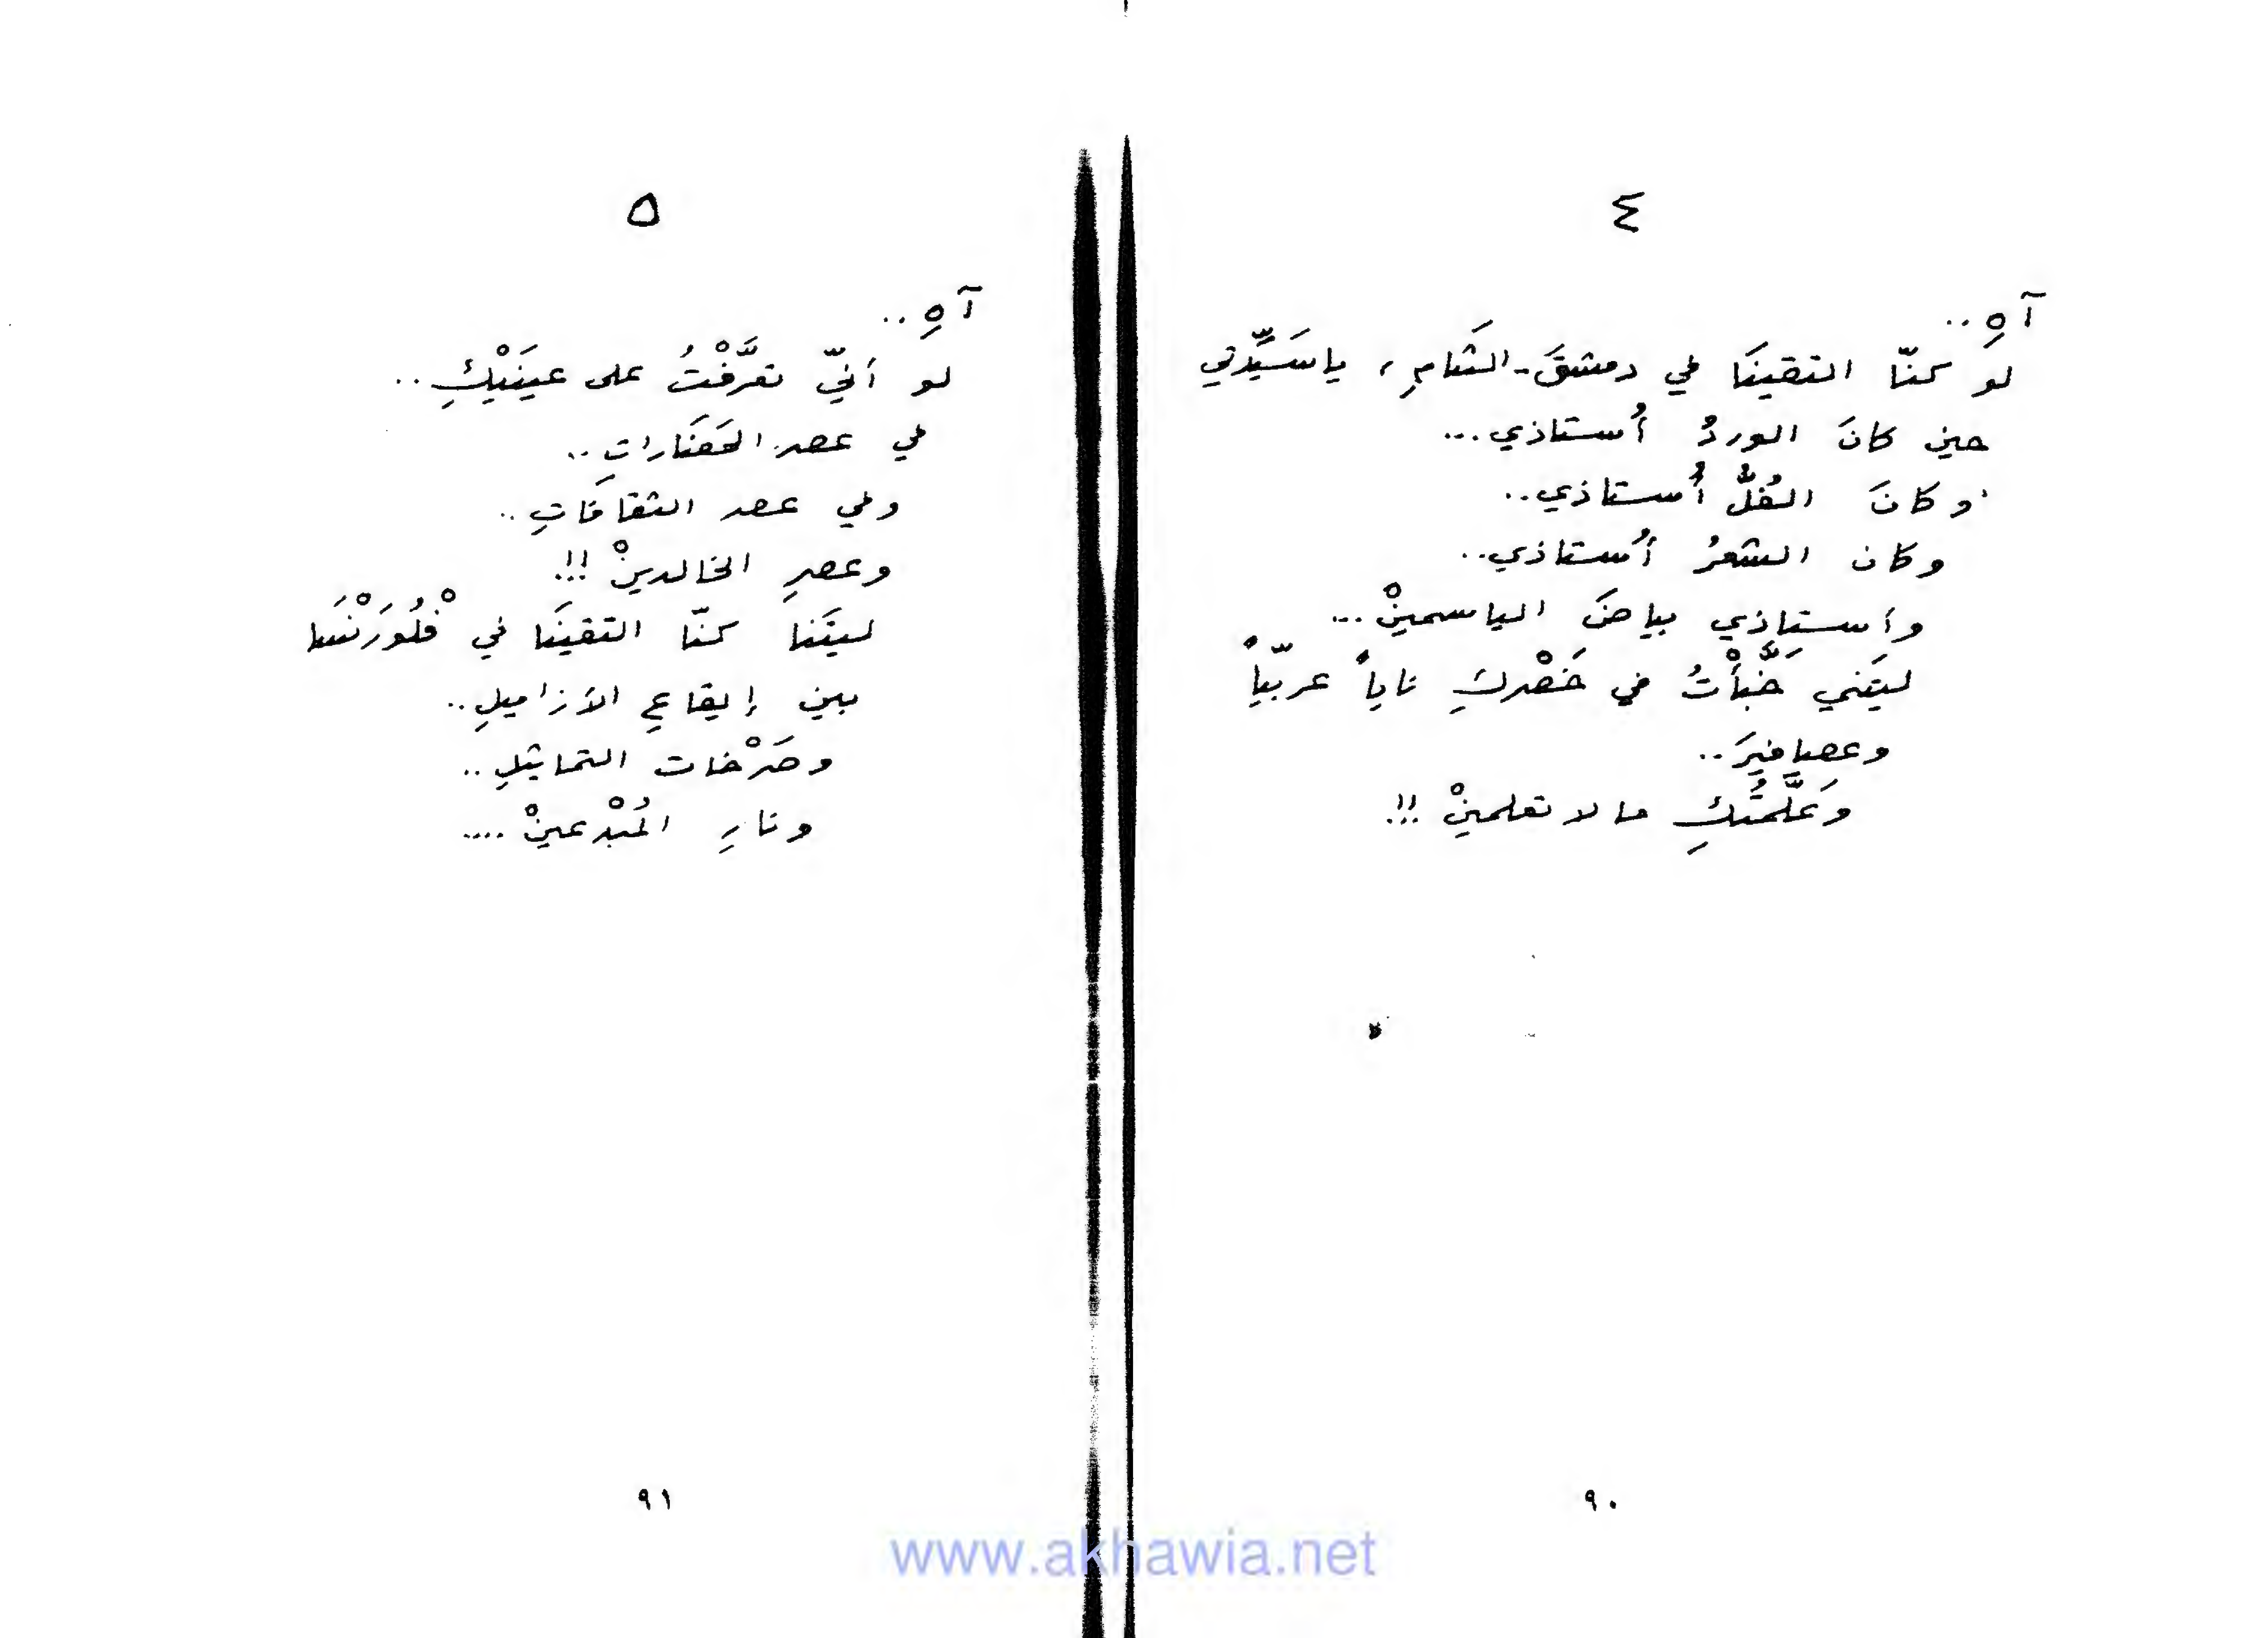 ٤
آهِ ..
لو كنّا التقينَا في دمشقَ - الشَامِ ، ياسَيِّدتي
حين كانَ الوردُ أُستاذي ...
وكانَ الفُلُّ أُستاذي ..
وكان الشعرُ أُستاذي ..
وأستاذي بياضَ الياسمينْ ...
ليتَني خَبَّأْتُ في خَصْركِ ناياً عربيّاً
وعصافيرَ ..
وَعَلَّمتُكِ ما لا تعلمينْ !!!
٩٠
٥
آهِ ..
لو أنّي تعرَّفْتُ على عينَيْكِ ..
في عصر الحَضَاراتِ ..
وفي عصر الثقافَاتِ ..
وعصرِ الخالدينْ !!!
ليتَنا كنّا التقينَا في فْلُورَنْسَا
بين إيقاعِ الأزاميلِ ..
وصَرْخات التماثيلِ ..
ونارِ المُبْدعينْ ....
٩١
www.akhawia.net